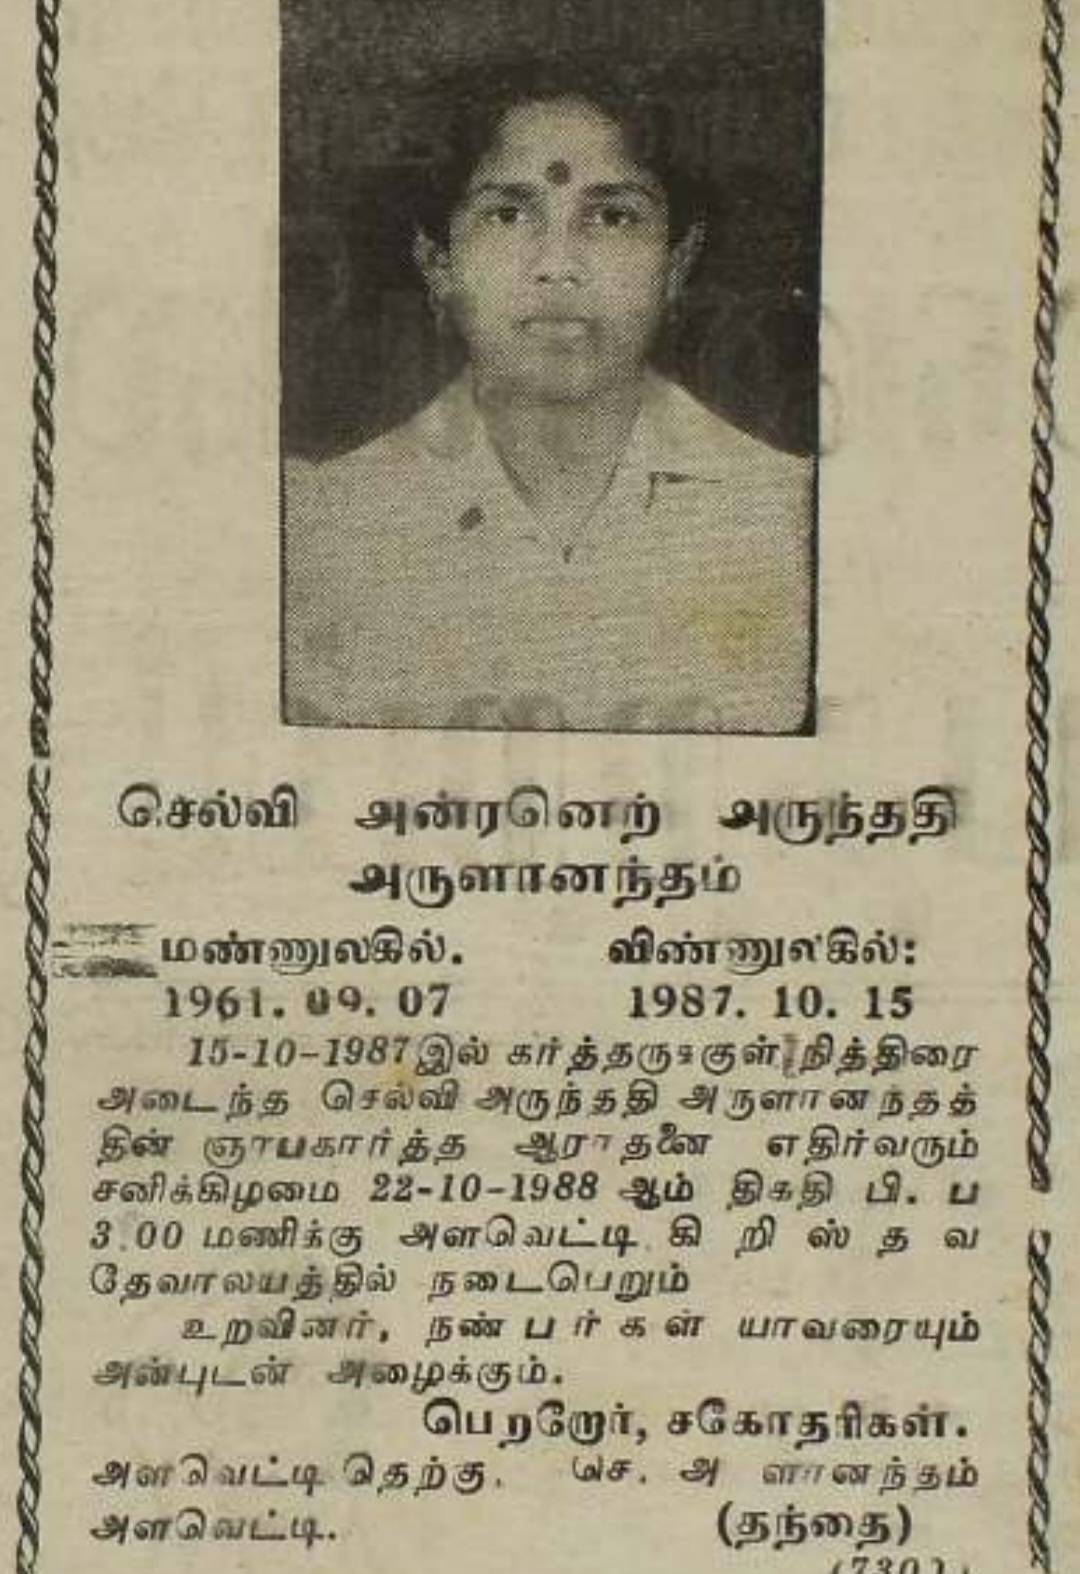 செல்வி அன்ரனெற் அருந்ததி
அருளானந்தம்
மண்ணுலகில். விண்ணுலகில்:
1961. 09. 07 1987. 10. 15
15-10-1987இல் கர்த்தருக்குள் நித்திரை
அடைந்த செல்வி அருந்ததி அருளானந்தத்
தின் ஞாபகார்த்த ஆராதனை எதிர்வரும்
சனிக்கிழமை 22-10-1988 ஆம் திகதி பி. ப
3.00 மணிக்கு அளவெட்டி கி றி ஸ் த வ
தேவாலயத்தில் நடைபெறும்
உறவினர், நண் ப ர் க ள் யாவரையும்
அன்புடன் அழைக்கும்.
பெறறோர், சகோதரிகள்.
அளவெட்டி தெற்கு. செ.
அளவெட்டி. (தந்தை)